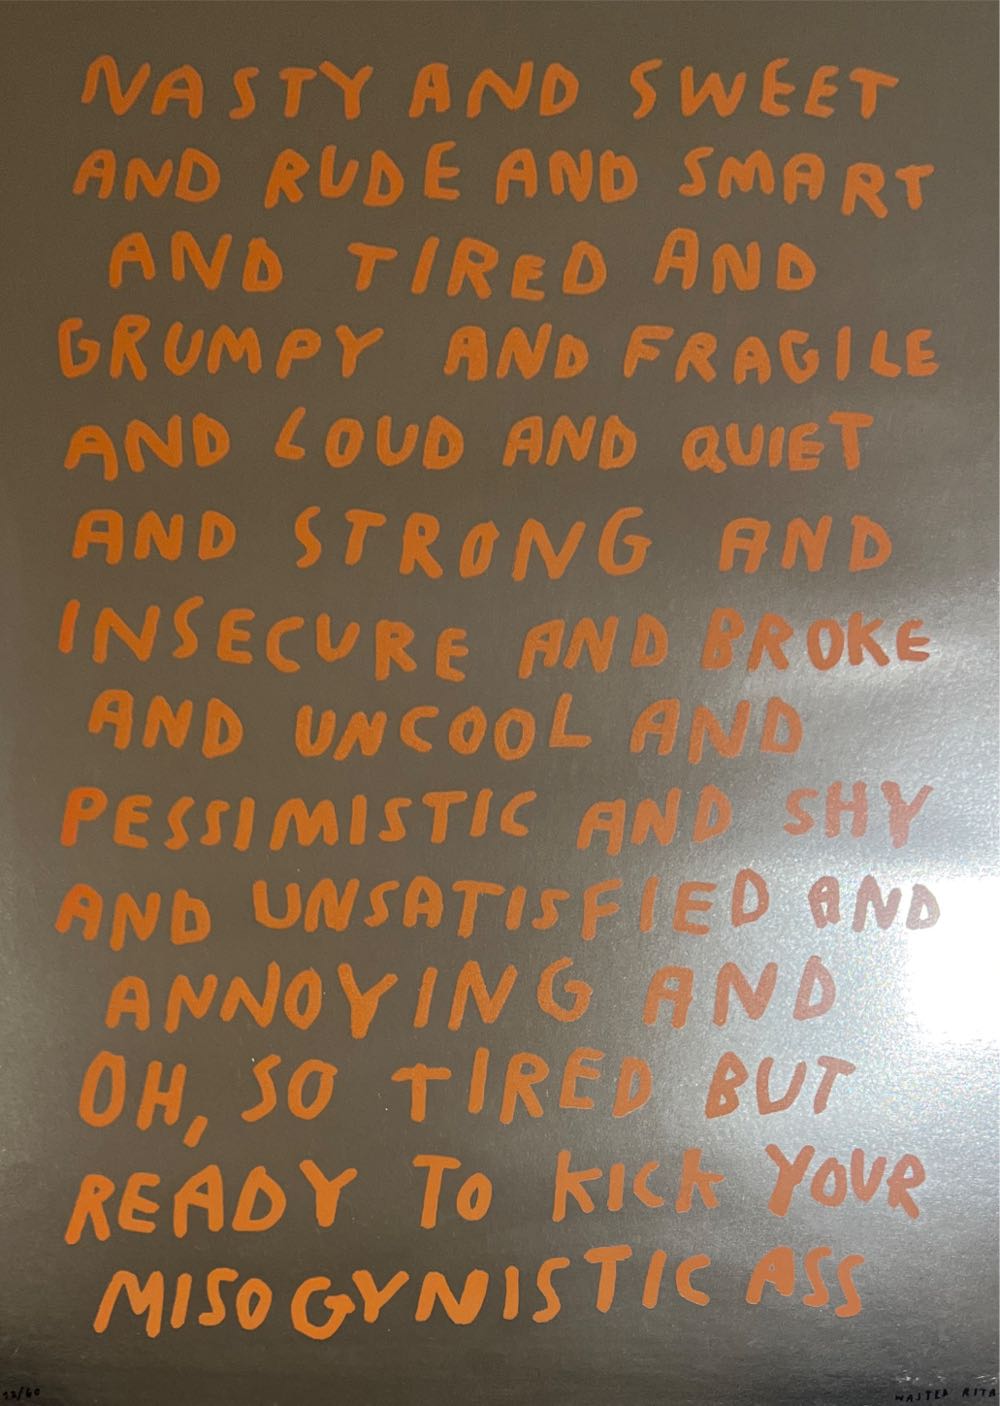 NASTY AND SWEET
AND RUDE AND SMART
AND TIRED AND
GRUMPY AND FRAGILE
AND LOUD AND QUIET
AND STRONG AND
INSECURE AND BROKE
AND UNCOOL AND
PESSIMISTIC AND SHY
AND UNSATISFIED AND
ANNOYING AND
OH, SO TIRED BUT
READY TO KICK YOUR
MISOGYNISTIC ASS
WASTED RITA